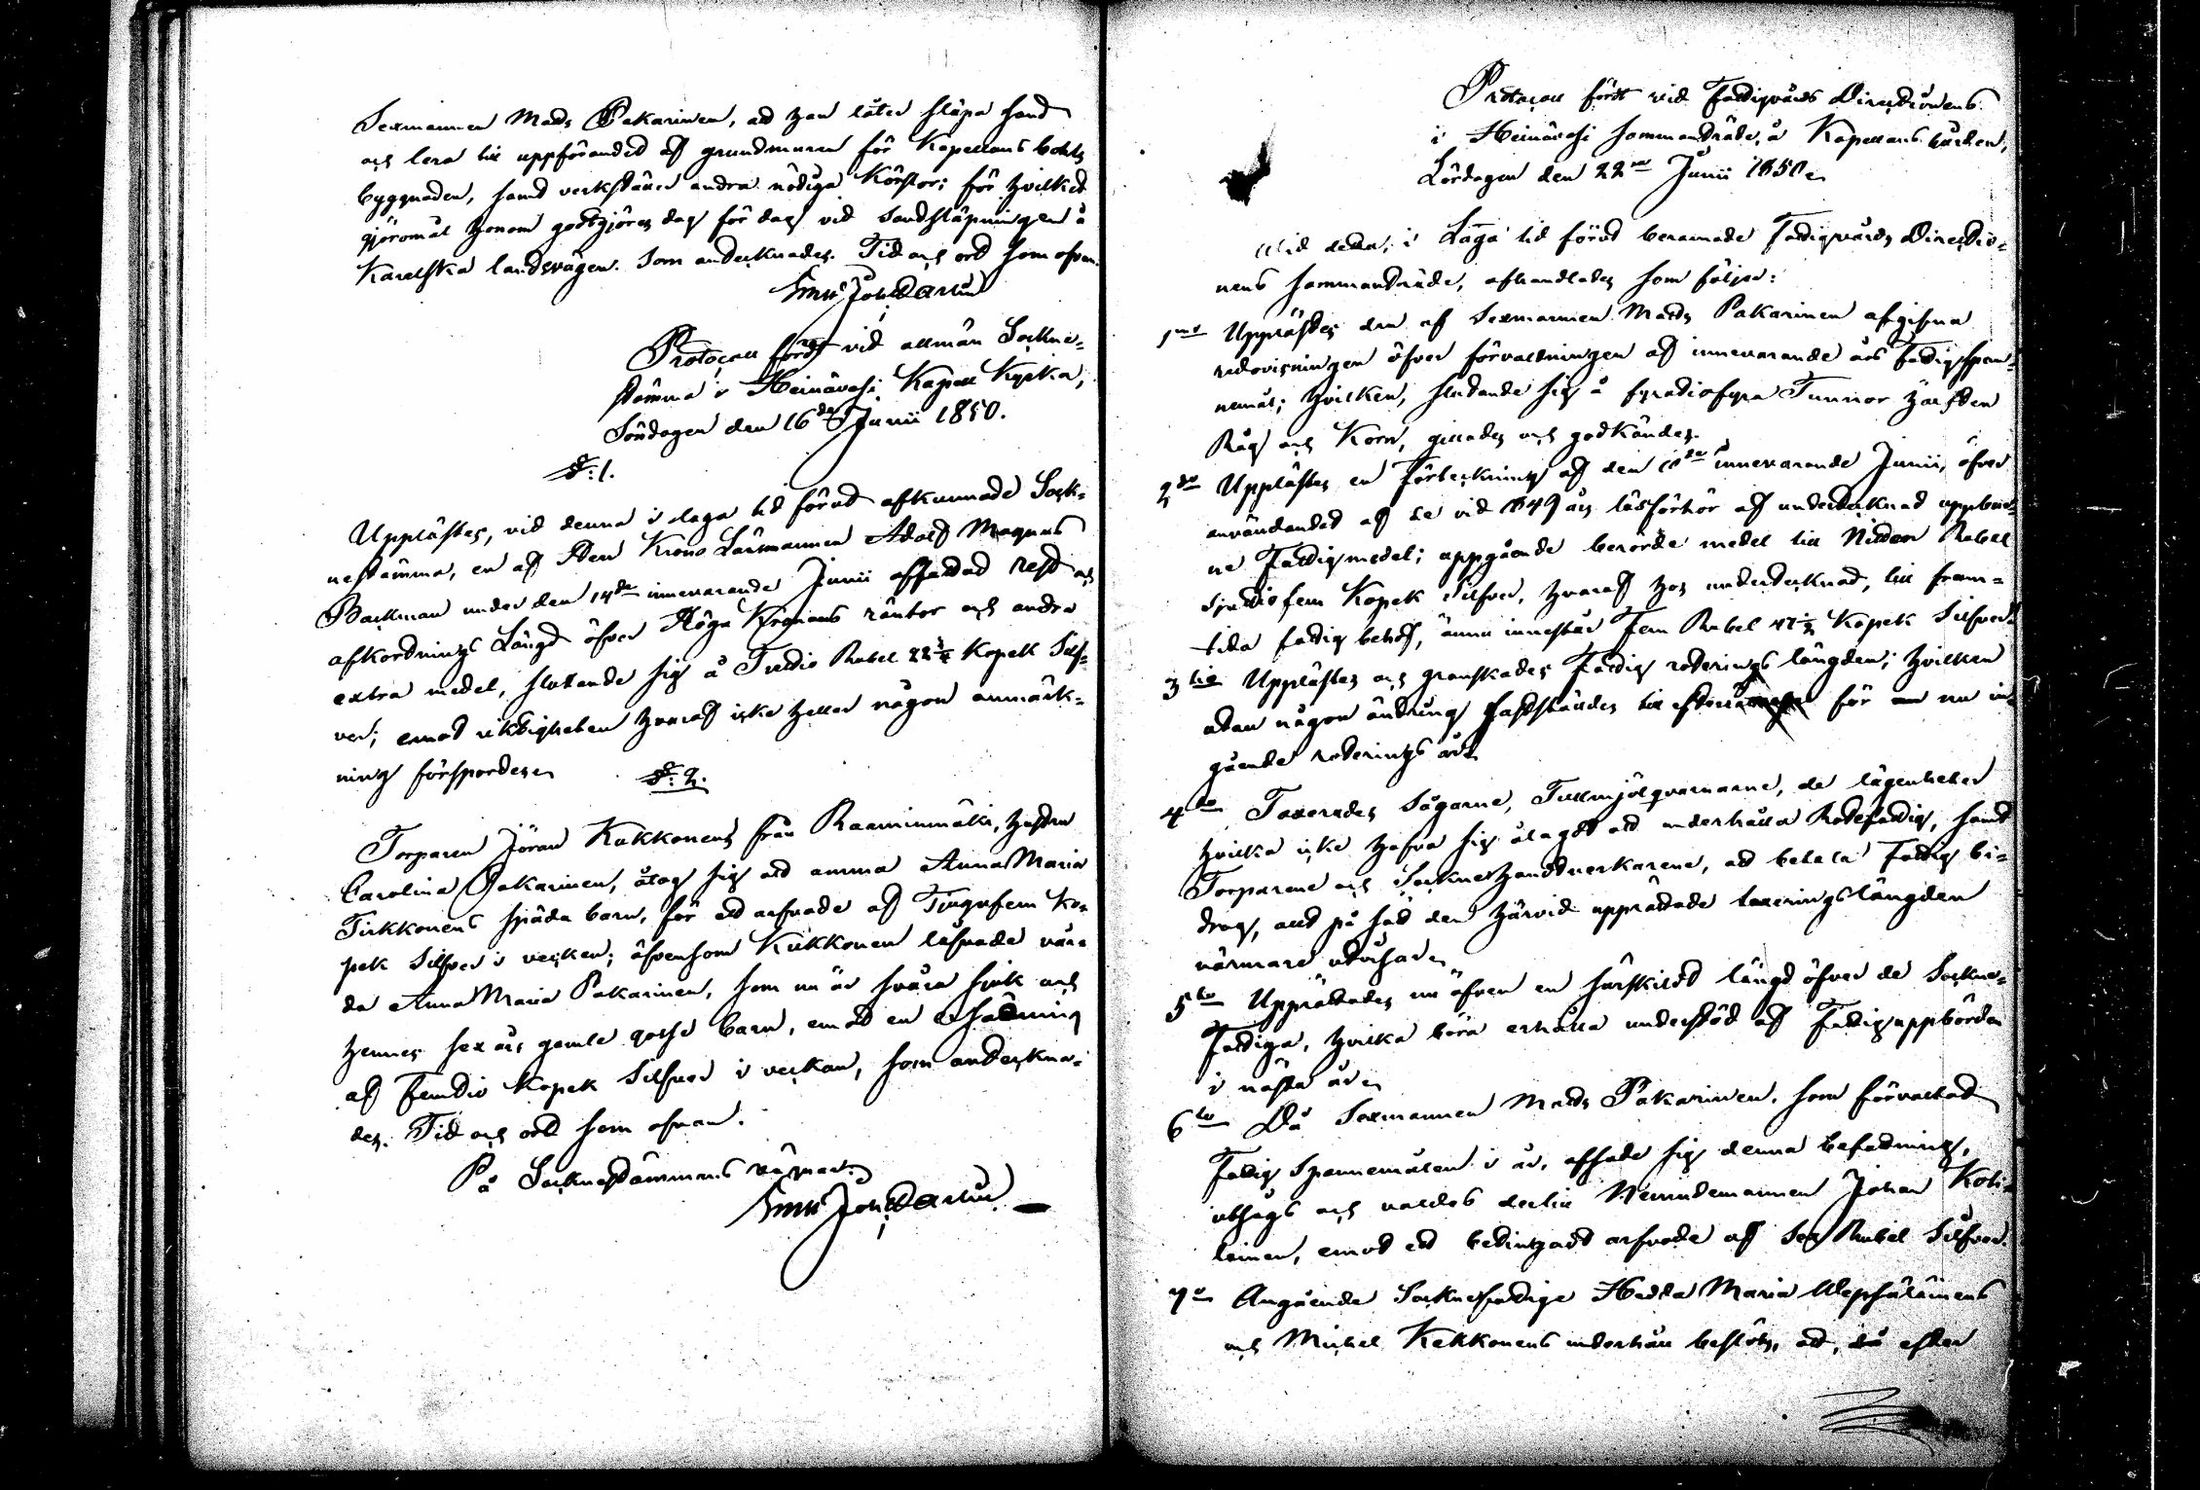 Sexmannen Mats Pakarinen, att han låter släpa sand
och lera till uppförandet af grundmuren för Kapellans bohls
byggnaden, samt verkställer andra nödiga Körslor; för hvilket
göromål honom godtgöres dag för dag vid sandsläpningen å
Karelska landsvägen. Som antecknades. Tid och ort som ofvan.
Protocoll fördt vid allmän Sockne-
stämma i Heinävesi Kapell Kyrka,
Söndagen den 16de Junii 1850.
§: 1.
Upplästes, vid denna i laga tid förut afkunnade Sock-
nestämma, en af Herr Krono Länsmannen Adolf Magnus
Backman under den 14de innevarande Junii affattad rest och
afkortnings Längd öfver Höga Kronans räntor och andra
extra medel, slutande sig å Trettio Rubel 22 1/4 Kopek Silf-
ver; emot riktigheten hvaraf icke heller någon anmärk-
ning försportes.
§: 2.
Torparen Jöran Kukkonens från Raaminmäki, hustru
Carolina Pakarinen, åtog sig att amma Anna Maria
Tirkkonens späda barn, för ett arfvode af Tjugufem Ko-
pek Silfver i veckan; äfvensom Kukkonen lofvade vår-
da Anna Maria Pakarinen, som nu är svåra sjuk och
hennes sex års gamle gosse barn, emot en ersättning
af Femtio Kopek Silfver i veckan, som anteckna-
des. Tid och ort som ofvan.
På Sockenstämmans vägnar:
Protocoll fördt vid Fattigvårds Directionens
i Heinävesi sammanträde, å Kapellans bohlen,
Lördagen den 22ne Junii 1850.
Vid detta, i Laga tid förut beramade Fattigvårds Directio-
nens sammanträde, afhandlades som följer:
1mo Upplästes den af Sexmannen Mats Pakarinen afgifna
redovisningen öfver förvaltningen af innevarande års Fattigspan-
nemål; hvilken, slutande sig å fyratiofyra Tunnor hälften
Råg och Korn, gillades och godkändes.
2do Upplästes en Förteckning af den innevarande Junii, öfver
användandet af de vid 1849 års läsförhör af undertecknad uppburne
ne Fattigmedel; uppgående berörde medel till Nitton Rubel
Sjuttiofem Kopek Silfver, hvaraf hos undertecknad, till fram-
tida fattig behof, ännu innestår Fem Rubel 47 1/2 Kopek Silfver.
3tio Upplästes och granskades Fattig roterings längden; hvilken
utan någon ändring fastställdes till för nu in-
gående roterings året.
4to Taxerades Sågarne, Tullmjölqvarnarne, de lägenheter
hvilka icke hafva sig ålagdt att underhålla Rotefattig, samt
Torparene och Sockne handtverkarene, att betala Fattig bi-
drag, allt på sätt den härvid upprättade taxerings längden
närmare utvisar.
5to Upprättades nu äfven en särskildt längd öfver de Sockne-
Fattiga, hvilka böra erhålla understöd af Fattiguppbörden
i nästa år.
6to Då Sexmannen Mats Pakarinen, som förvaltat
Fattig Spannemålen i år, afsade sig denna befattning,
utsågs och valdes dertill Nämndemannen Johan Koti-
lainen, emot ett betingadt arfvode af Sex Rubel Silfver.
7o Angående Socknefattige Hedda Maria Wepsäläinens
och Michel Kekkonens underhåll beslöts, att, då efter